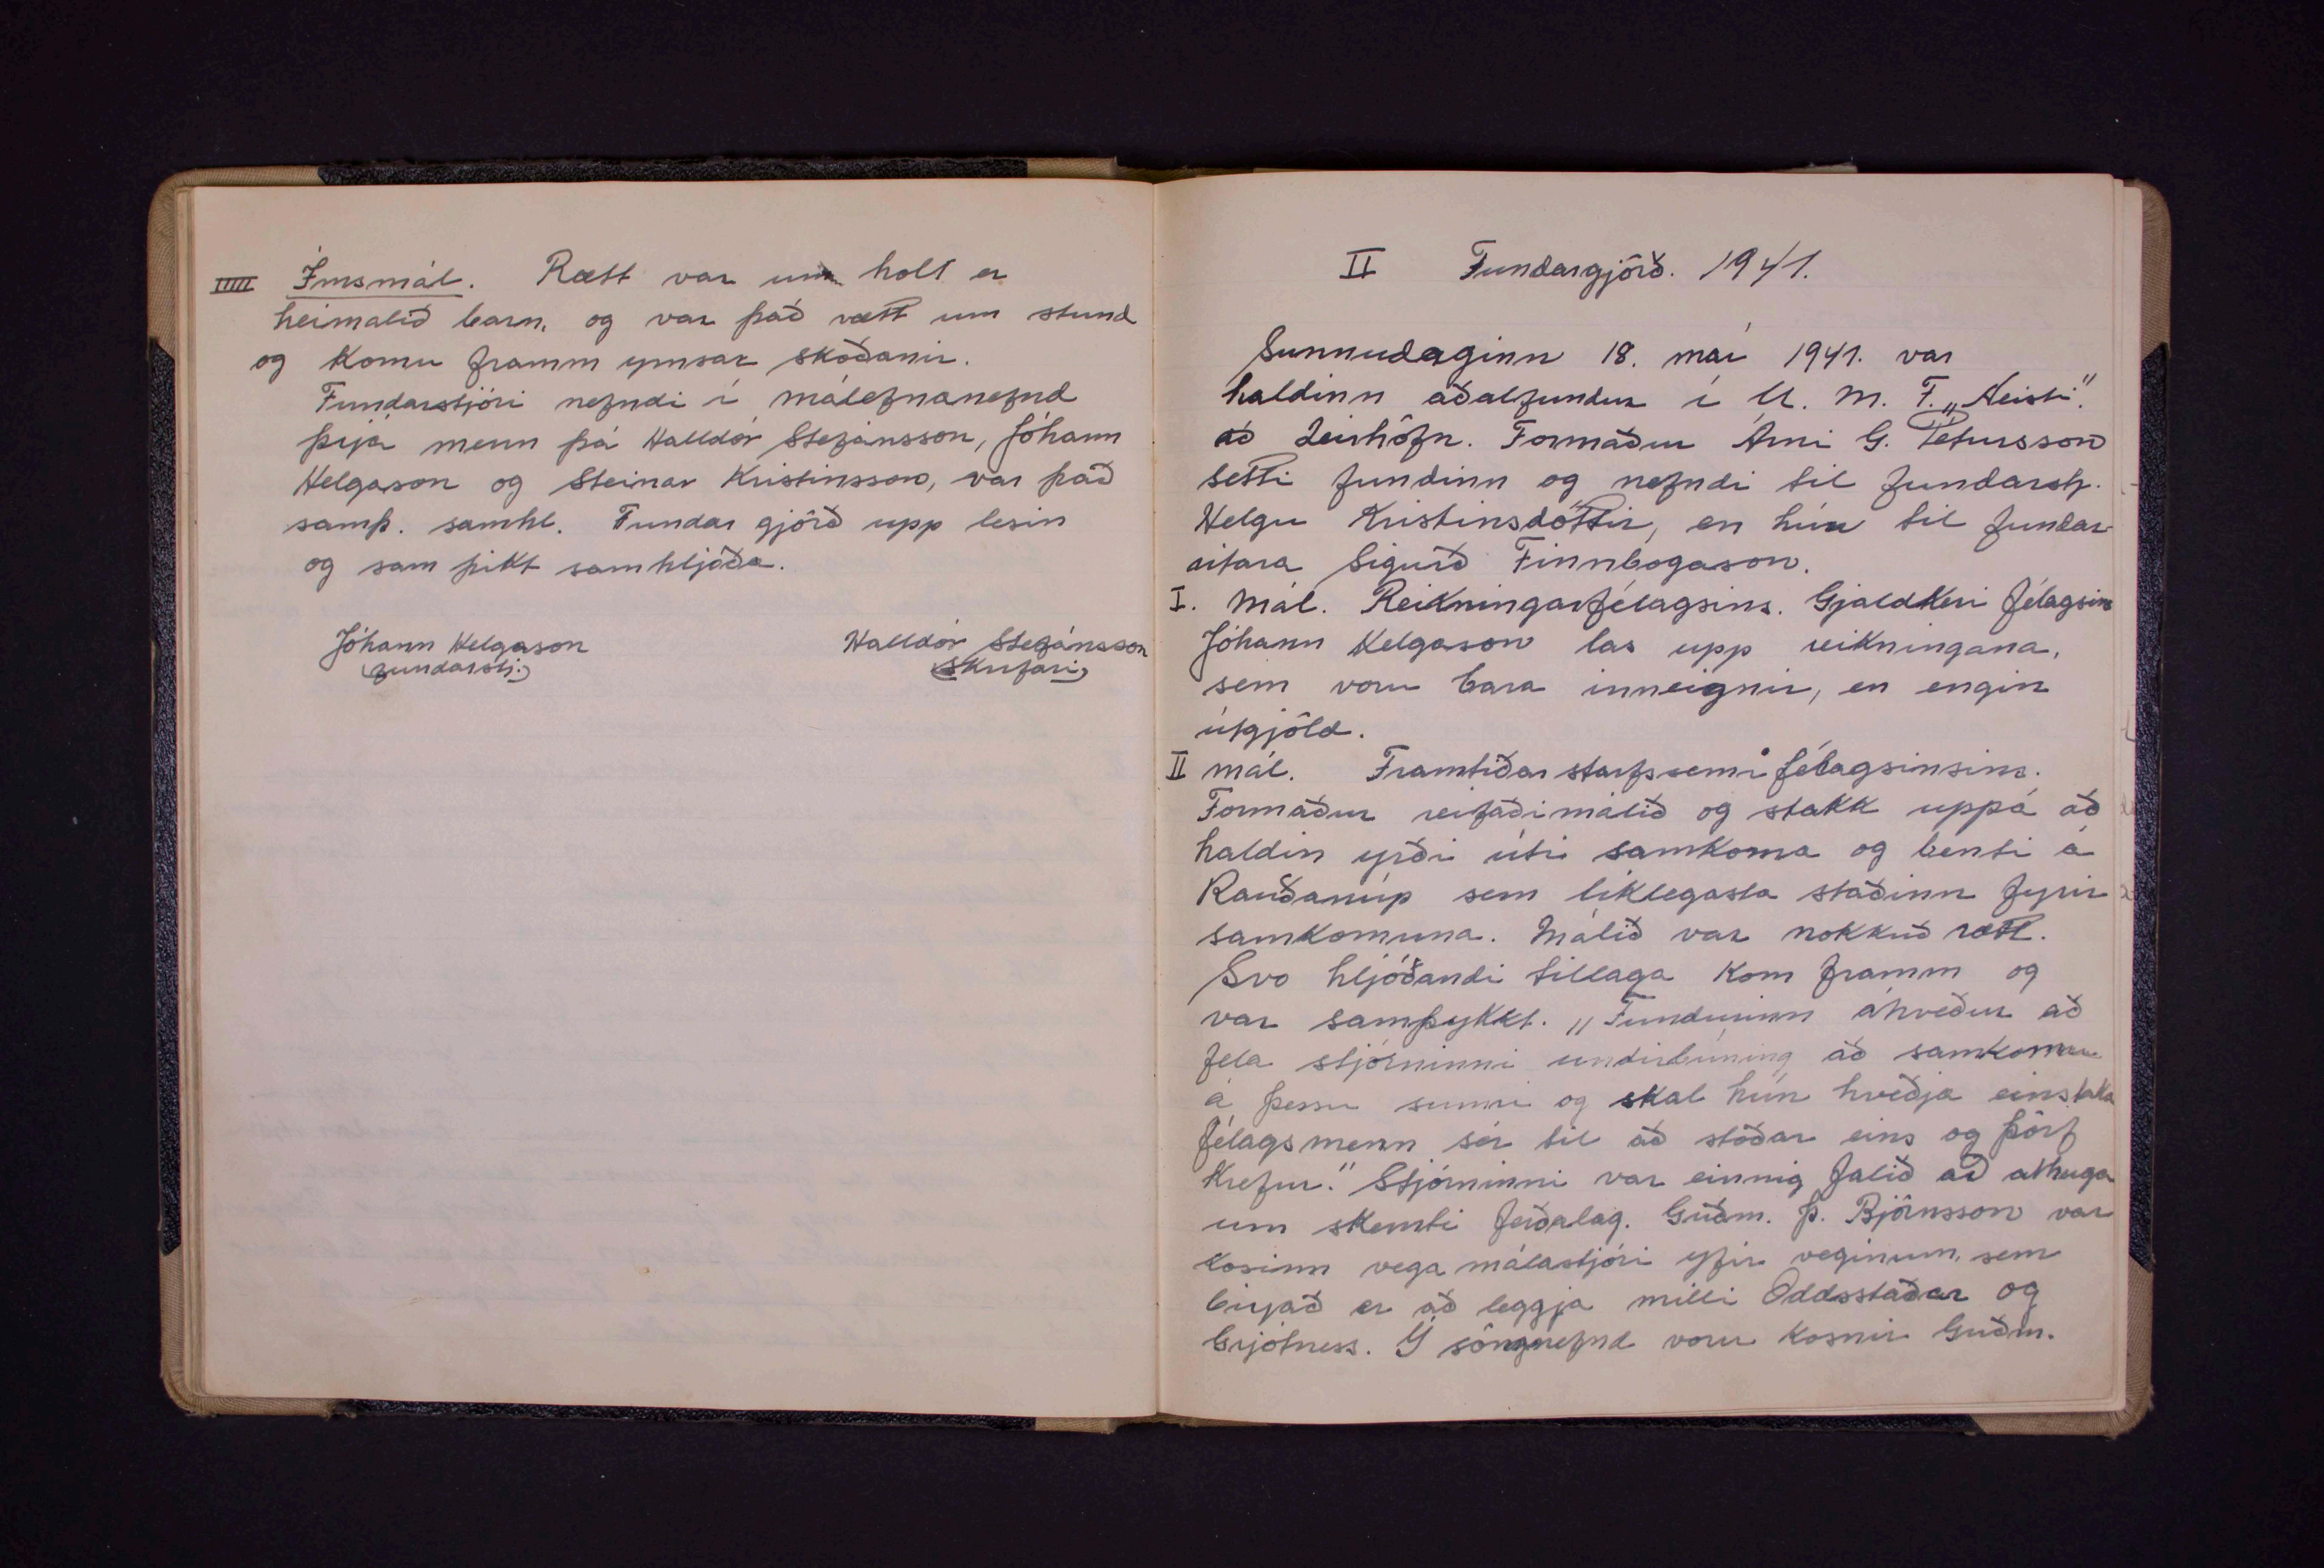 IIIII Ímsmál. Rætt var um holt er
heimalið barn, og var það rætt um stund
og komu framm ymsar skoðanir.
Fundarstjóri nefndi í málefnanefnd
þrjá menn þá Halldór Stefánsson, Jóhann
Helgason og Steinar Kristinsson, var það
samþ. samhl. Fundar gjörð upp lesin
og sam þikt samhljóða.
Jóhann Helgason
fundarstj.
Halldór Stefánsson
Skrifari
II Fundargjörð. 1941.
Sunnudaginn 18. maí 1941. var
haldinn aðalfundur í U. M. F. „Neisti".
að Leirhöfn. Formaður Árni G. Pétursson
setti fundinn og nefndi til fundarstj.
Helgu Kristinsdóttir, en hún til fundar
ritara Sigurð Finnbogason.
I. mál. Reikningar félagsins. Gjaldkeri félagsins
Jóhann Helgason las upp reikningana,
sem voru bara inneignir, en engin
útgjöld.
II mál. Framtíðar starfsemi félagsinsins.
Formaður reifaði málið og stakk uppá að
haldin yrði úti samkoma og benti á
Rauðanúp sem líklegasta staðinn fyrir
samkomuna. Málið var nokkuð rætt.
Svo hljóðandi tillaga kom framm og
var samþykkt. „Fundurinn ákveður að
fela stjórninni undirbúning að samkomu
á þessu sumri og skal hún kveðja einstaka
félagsmenn sér til að stoðar eins og þörf
krefur." Stjórninni var einnig falið að athuga
um skemti ferðalag. Guðm. Þ. Björnsson var
kosinn vega málastjóri yfir veginum, sem
birjað er að leggja milli Oddsstaðar og
Grjótness. Í söngnefnd voru kosnir Guðm.